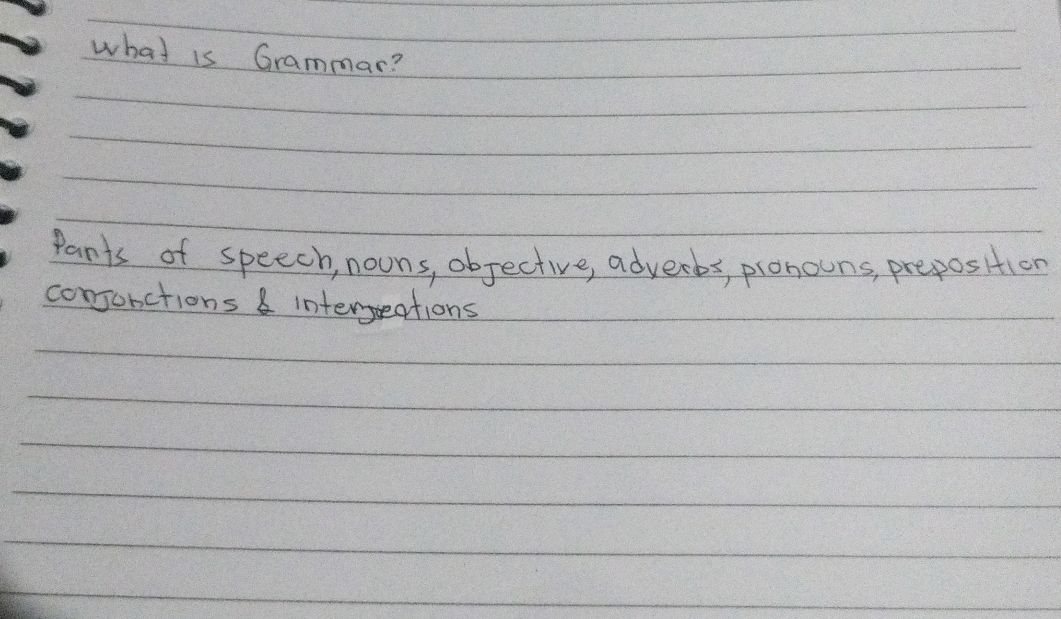 What is Grammar?
Parts of speech, nouns, objective, adverbs, pronouns, preposition
conjonctions &